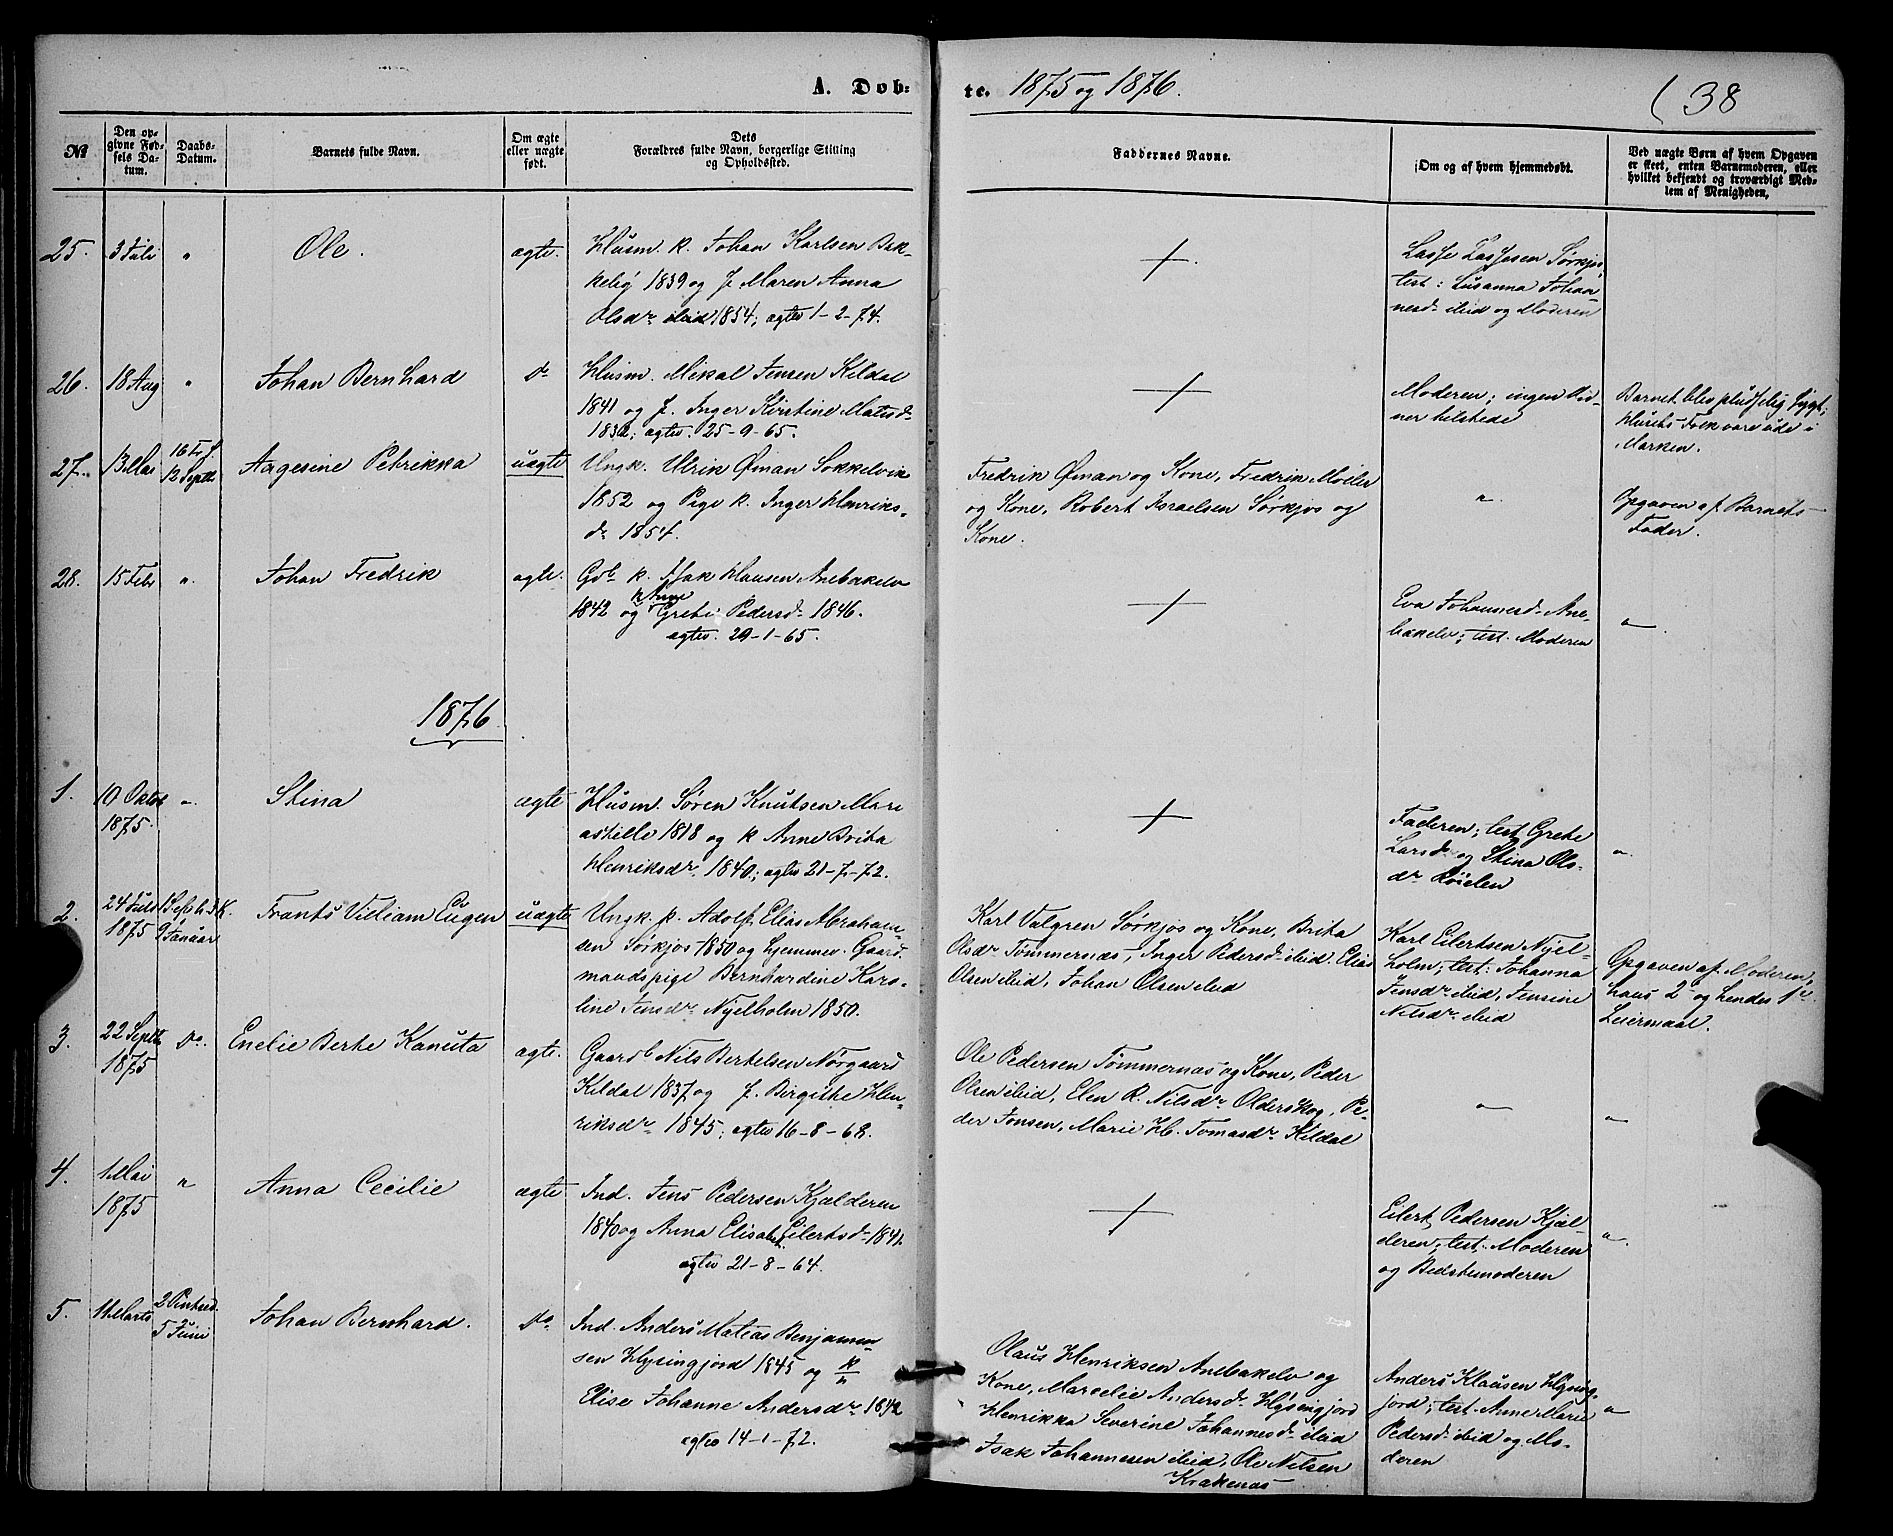 A. Døb-
te. 1875 og 1876.
( 38
№
Den op-
givne Fød-
sels Da-
tum.
Daabs-
Datum.
Barnets fulde Navn.
Om ægte
eller uægte
født.
Dets
Forældres fulde Navn, borgerlige Stilling
og Opholdssted.
Faddernes Navne.
Om og af hvem hjemmedøbt.
Ved uægte Børn af hvem Opgaven
er skeet, enten Barnemoderen, eller
hvilket bekjendt og troværdigt Med-
lem af Menigheden.
25. 3 Juli " Ole. ægte. Husm. k. Johan Karlsen Bak-
kebý 1839 og f. Maren Anna
Olsdr ibid. 1854; ægtev 1-2-74.
Lasse Lassesen Sørkjos,
test: Susanna Johan-
nesd. ibid og Moderen
26. 18 Aug " Johan Bernhard do Husm. Mikal Jensen Kildal
1841 og f. Inger Kirstine Matisd.
ægtev. 25-9-65.
Moderen; ingen Vid-
ner tilstede
Barnet blev pludselig sygt;
Husets Folk vare ude i
Marken.
27. Mai 16 Tr.
12 Septbr Aagesine Petrikka uægte Ungk. Ulrik Øman Sokkelvik
1852 og Pige k. Inger Henriks-
dr 1854.
Fredrik Øman og Kone, Fredrik Møller
og Kone, Robert Israelsen Sørkjos og
Kone.
"
Opgaven af Barnets
Fader.
28. 15 Febr ". Johan Fredrik ægte. Gdb k. Isak Hansen Anebakelv
1842 og k Anne Grete Pedersd. 1846.
ægtev. 29-1-65.
Eva Johannesd. Ane-
bakelv; test. Moderen
"
1876
1. 10 Oktbr
1875. " Stina ægte Husm. Søren Knutsen Mari
astille 1818 og k Anne Brita
Henriksdr. 1840; ægtev 21-7-72.
Faderen; test Grete
Larsd. og Stina Ols-
dr Røielen
"
2. 24 Juli
1875 1 S eft h 3 K.
9 Januar Frants Villiam Eugen uægte Ungk. k. Adolf Elias Abraham-
sen Sørkjos 1850 og hjemmev. Gaard
mandspige Bernhardine Karo-
line Jensdr. Nyelholm 1850.
Karl Valgren Sørkjos og Kone, Brita
Olsdr Tømmernæs, Inger Pedersd. ibid, Elias
Olsen ibid, Johan Olsen ibid
Karl Eilertsen Nyel-
holm; test: Johanna
Jensdr ibid, Jensine
Nilsdr ibid
Opgaven af Moderen;
hans 2 og hendes 1ste
Leiermaal.
3. 22 Septbr
1875 Do. Enelie Berte Kanuta ægte. Gaardb Nils Bertelsen Nørgaard
Kildal 1837 og f. Birgithe Hen-
riksdr. 1845; ægtev 16-8-68.
Ole Pedersen Tømmernæs og Kone, Peder
Olsen ibid, Elen R. Nilsdr Olderskog, Pe-
der Jonsen, Marie H. Tomasdr. Kildal
"
"
4. 1 Mai
1875 " Anna Cecilie ægte Ind. Jens Pedersen Kjælderen
1840 og Anna Elisabet Eilertsd. 1841.
ægtev 21-8-64.
Eilert Pedersen Kjæl-
deren; test. Moderen
og Bedstemoderen
"
5. 11 Marts 2 Pintsed.
5 Juni Johan Bernhard. Do Ind. Anders Matias Benjamin-
sen Hysingjord 1845 og k/n
Elise Johanne Andersdr. 1842
ægtev 14-1-72.
Olaus Henriksen Anebakelv og
Kone, Marselie Andersd. Hysingjord
Henrikka Severine Johannesd. ibid
Isak Johannesen ibid, Ole Nilsen
Krakenæs
Anders Klausen Hysing-
jord; test. Anne Marie
Pedersd. ibid og Mo-
deren
"